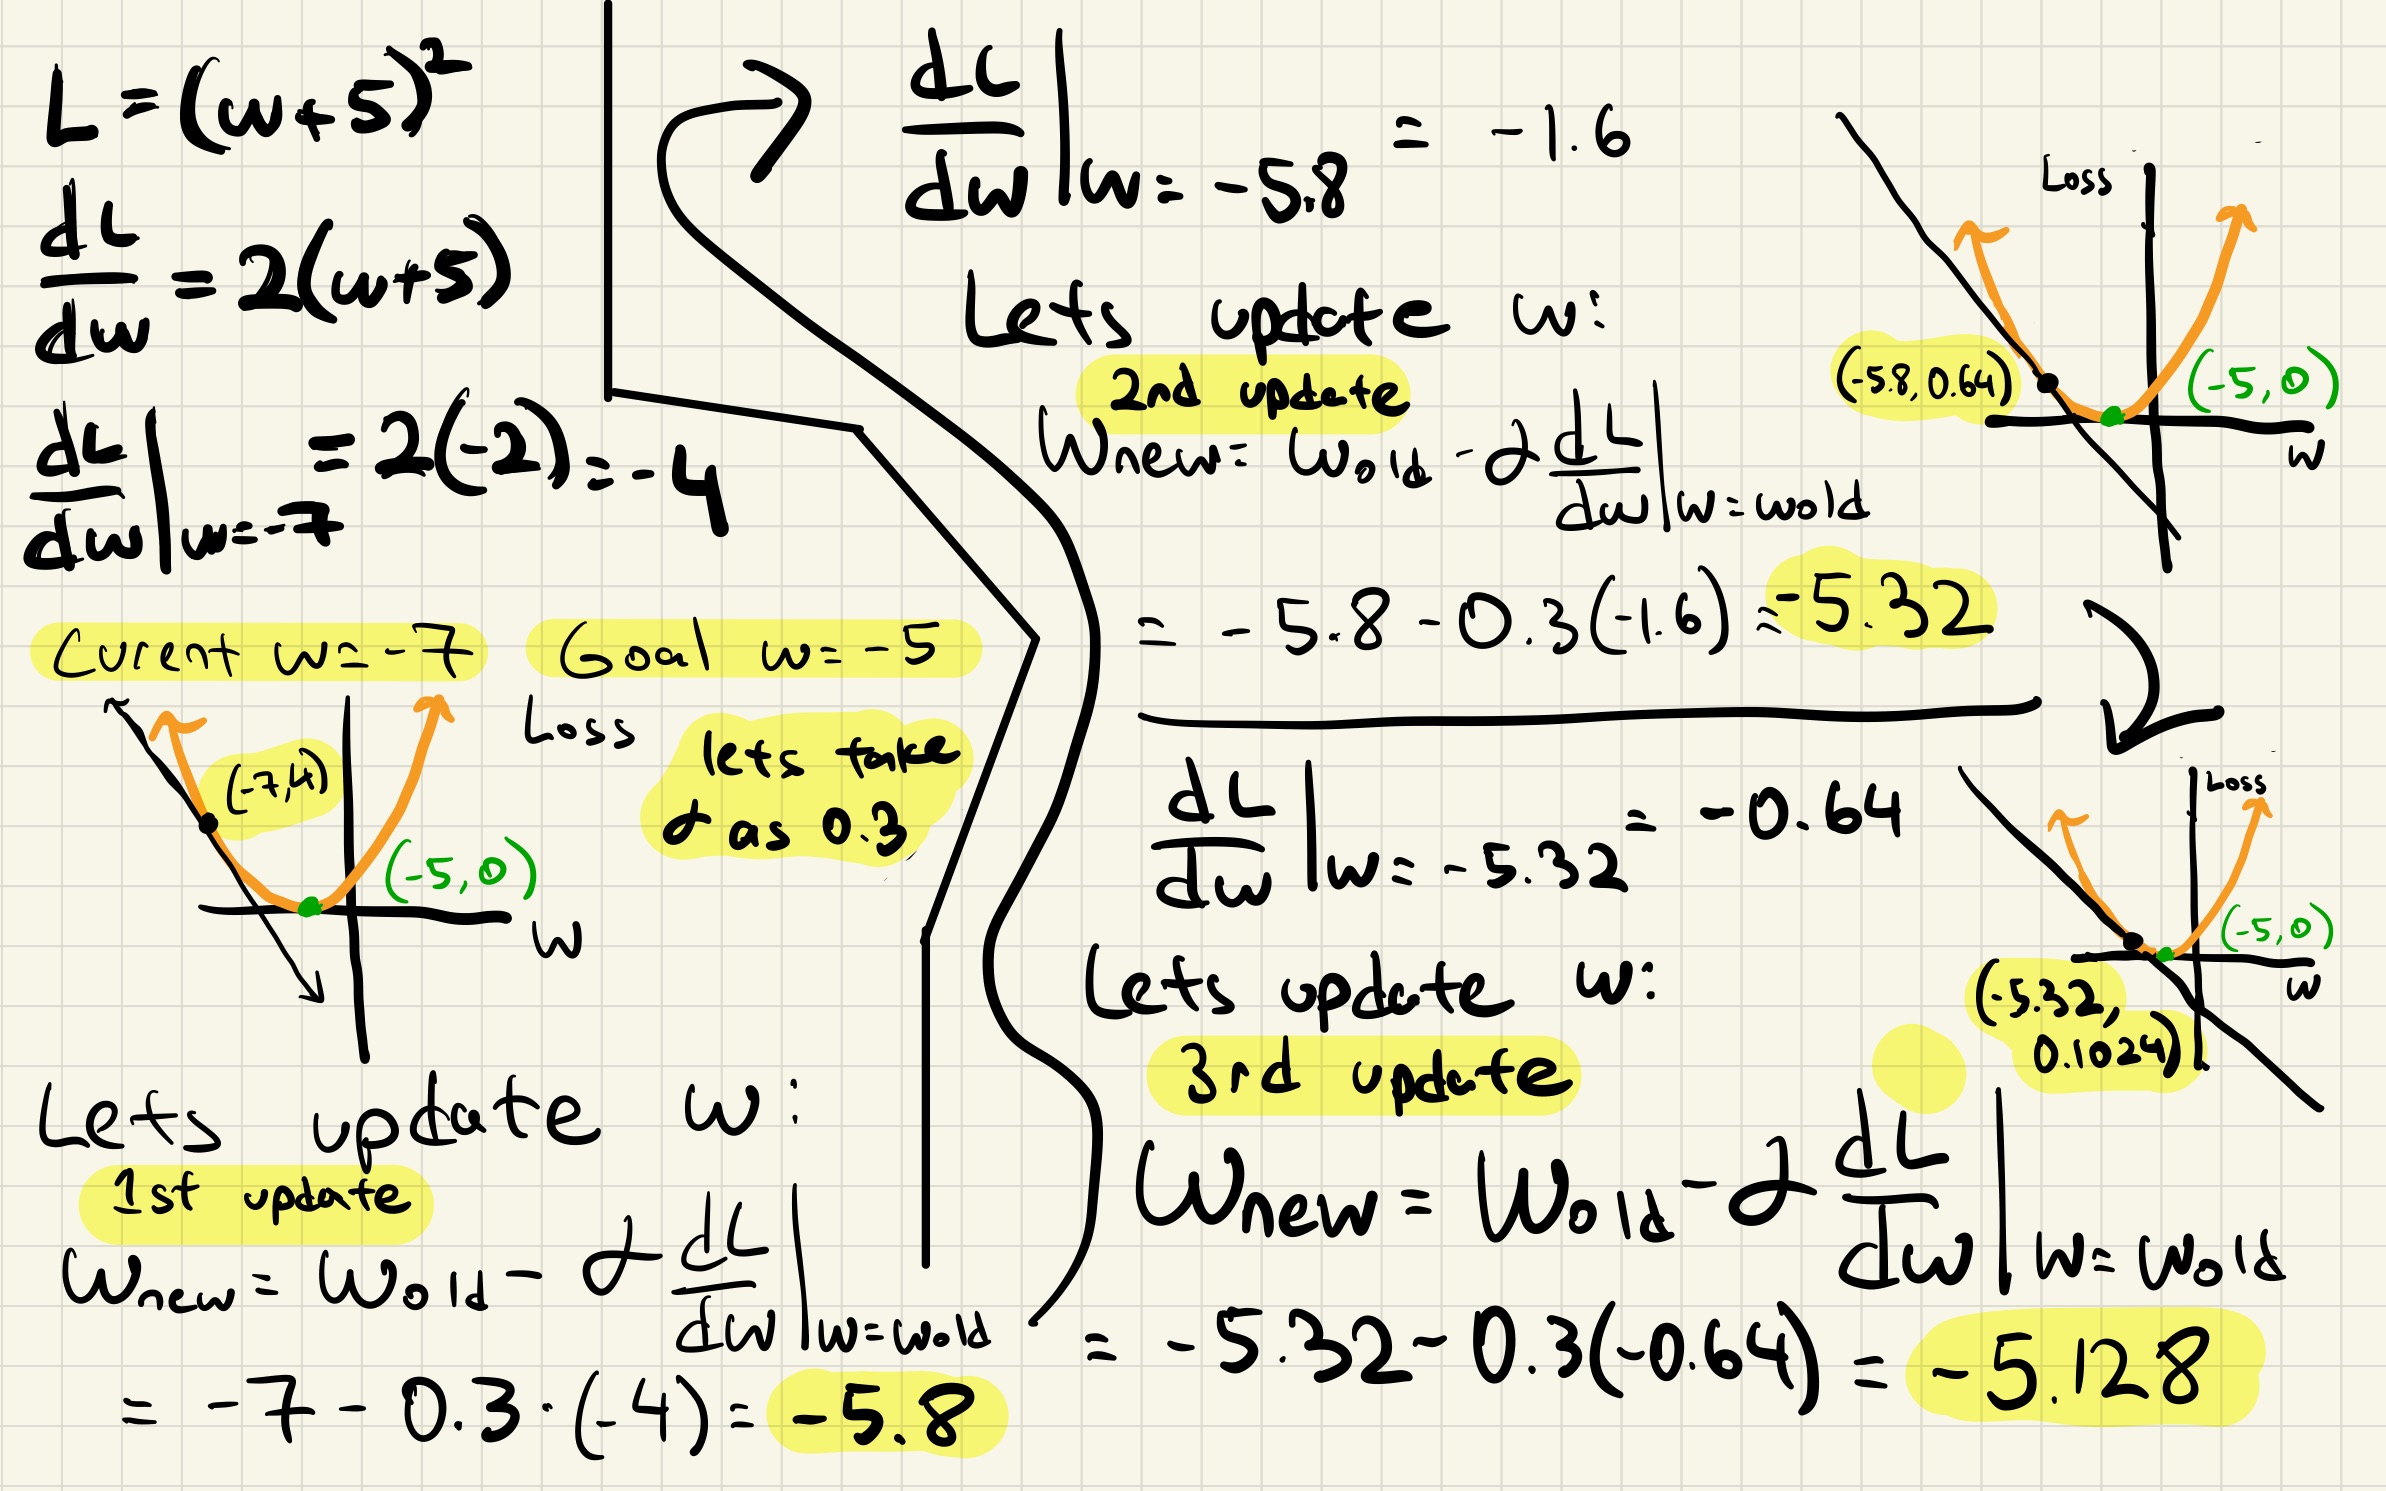 L = (w+5)²
dL/dw = 2(w+5)
dL/dw | w=-7 = 2(-2) = -4
Curent w = -7 Goal w = -5
Loss
(-7,4)
lets take
α as 0.3
(-5,0)
w
Lets update w:
1st update
Wnew = Wold - α dL/dw | w=wold
= -7 - 0.3 · (-4) = -5.8
dL/dw | w = -5.8 = -1.6
Lets update w:
2nd update
Wnew = Wold - α dL/dw | w=wold
= -5.8 - 0.3(-1.6) = -5.32
Loss
(-5.8, 0.64)
(-5,0)
w
dL/dw | w = -5.32 = -0.64
Loss
(-5,0)
w
(-5.32,
0.1024)
Lets update w:
3rd update
Wnew = Wold - α dL/dw | w=wold
= -5.32 - 0.3(-0.64) = -5.128